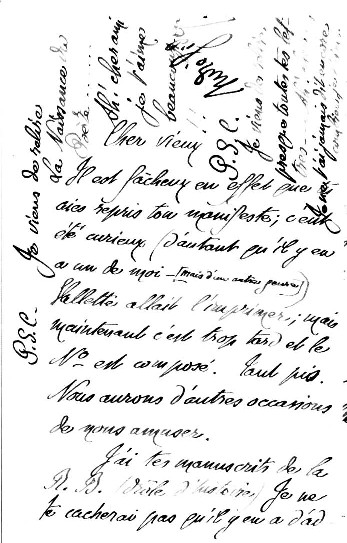 Cher vieux!
Il est fâcheux en effet que
aies repris ton manifeste; c'eut
été curieux (d'autant qu'il y en
a un de moi — (mais d'un autre genre))
Vallette allait l'imprimer; mais
maintenant c'est trop tard et le
No est composé. Tant pis.
Nous aurons d'autres occasions
de nous amuser.
J'ai tes manuscrits de la
R. B. (Drôle d'histoire) Je ne
te cacherai pas qu'il y en a d'ad-
P.S.C. Je viens de relire
La Naissance du
Poète
Ah! cher ami
je t'aime
beaucoup
P.S.C.
Je viens de lire
presque toutes tes let-
tres